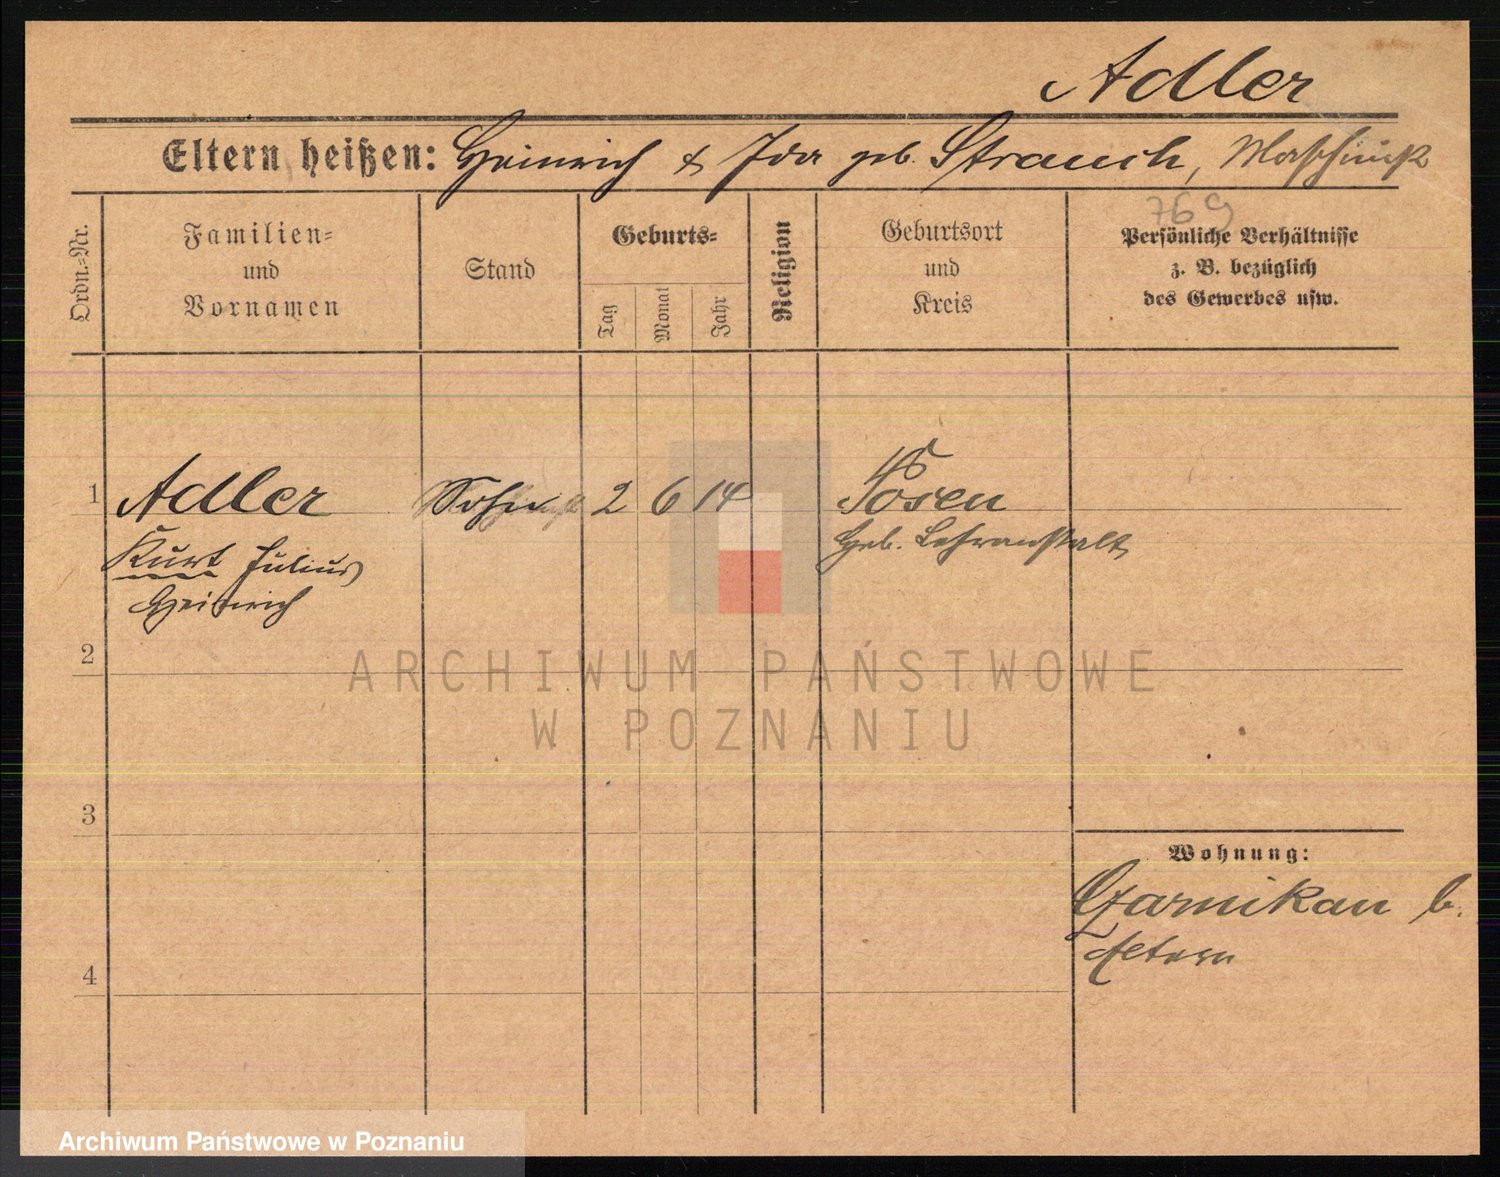 Adler
Eltern heißen: Heinrich & Ida geb. Strauch,
769
Ordn.-Nr.
Familien- und Vornamen
Stand
Geburts-
Tag
Monat
Jahr
Religion
Geburtsort und Kreis
Persönliche Verhältnisse
z. B. bezüglich
des Gewerbes usw.
1 Adler Sohn 2 6 14 Posen
Kurt Julius Geb. Lehranstalt
Heinrich
2
ARCHIWUM PAŃSTWOWE
W POZNANIU
3
Wohnung:
Czarnikau b.
Eltern
4
Archiwum Państwowe w Poznaniu